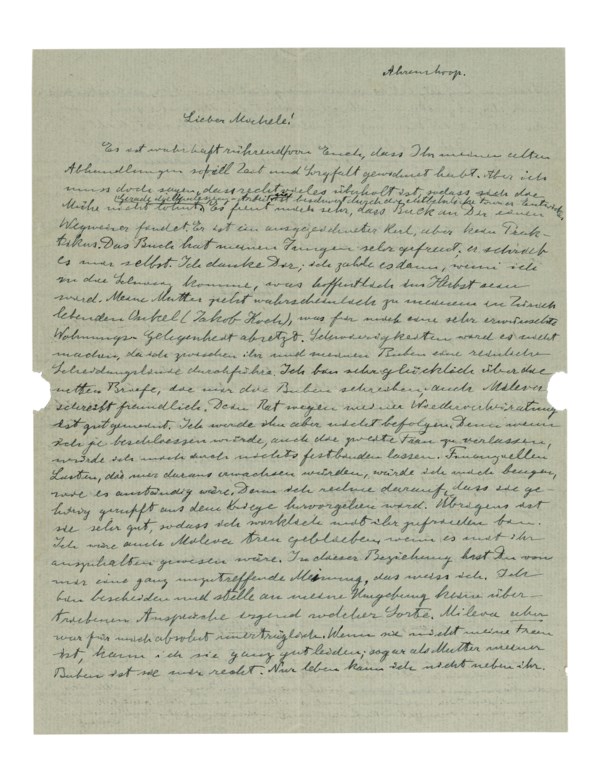 Ahrenshoop.
Lieber Michele!
Es ist wahrhaft rührend von Euch, dass Ihr meinen alten
Abhandlungen soviel Zeit und Sorgfalt gewidmet habt. Aber ich
muss doch sagen, dass recht vieles überholt ist, sodass sich die
Mühe nicht lohnt. Es freut mich sehr, dass Beck an Dir einen
Wegweiser findet. Er ist ein ausgezeichneter Kerl, aber kein Prak-
tikus. Das Buch hat meinen Jungen sehr gefreut, er schrieb
es mir selbst. Ich danke Dir; ich zahle es dann, wenn ich
in die Schweiz komme, was hoffentlich im Herbst sein
wird. Meine Mutter zieht wahrscheinlich zu meinem in Zürich
lebenden Onkel (Jakob Koch), was für mich eine sehr erwünschte
Wohnungs-Gelegenheit absetzt. Schwierigkeiten wird es nicht
machen, da ich zwischen ihr und meinen Buben eine reinliche
Scheidungslinie durchführe. Ich bin sehr glücklich über die
netten Briefe, die mir die Buben schreiben, auch Mileva
schreibt freundlich. Dein Rat wegen meiner Wiederverheiratung
ist gut gemeint. Ich werde ihn aber nicht befolgen. Denn wenn
ich je beschliessen würde, auch die zweite Frau zu verlassen,
würde ich mich doch durch nichts festbinden lassen. Finanziellen
Lasten, die mir daraus erwachsen würden, würde ich mich beugen,
wie es anständig wäre. Denn ich rechne darauf, dass sie ge-
hörig gerupft aus dem Kriege hervorgehen wird. Übrigens ist
sie sehr gut, sodass ich wirklich mit ihr zufrieden bin.
Ich wäre auch Mileva treu geblieben, wenn es mit ihr
auszuhalten gewesen wäre. In dieser Beziehung hast Du von
mir eine ganz unzutreffende Meinung, das weiss ich. Ich
bin bescheiden und stelle an meine Umgebung keine über-
triebenen Ansprüche irgend welcher Sorte. Mileva aber
war für mich absolut unerträglich. Wenn sie nicht meine Frau
ist, kann ich sie ganz gut leiden; sogar als Mutter meiner
Buben ist sie mir recht. Nur leben kann ich nicht neben ihr.